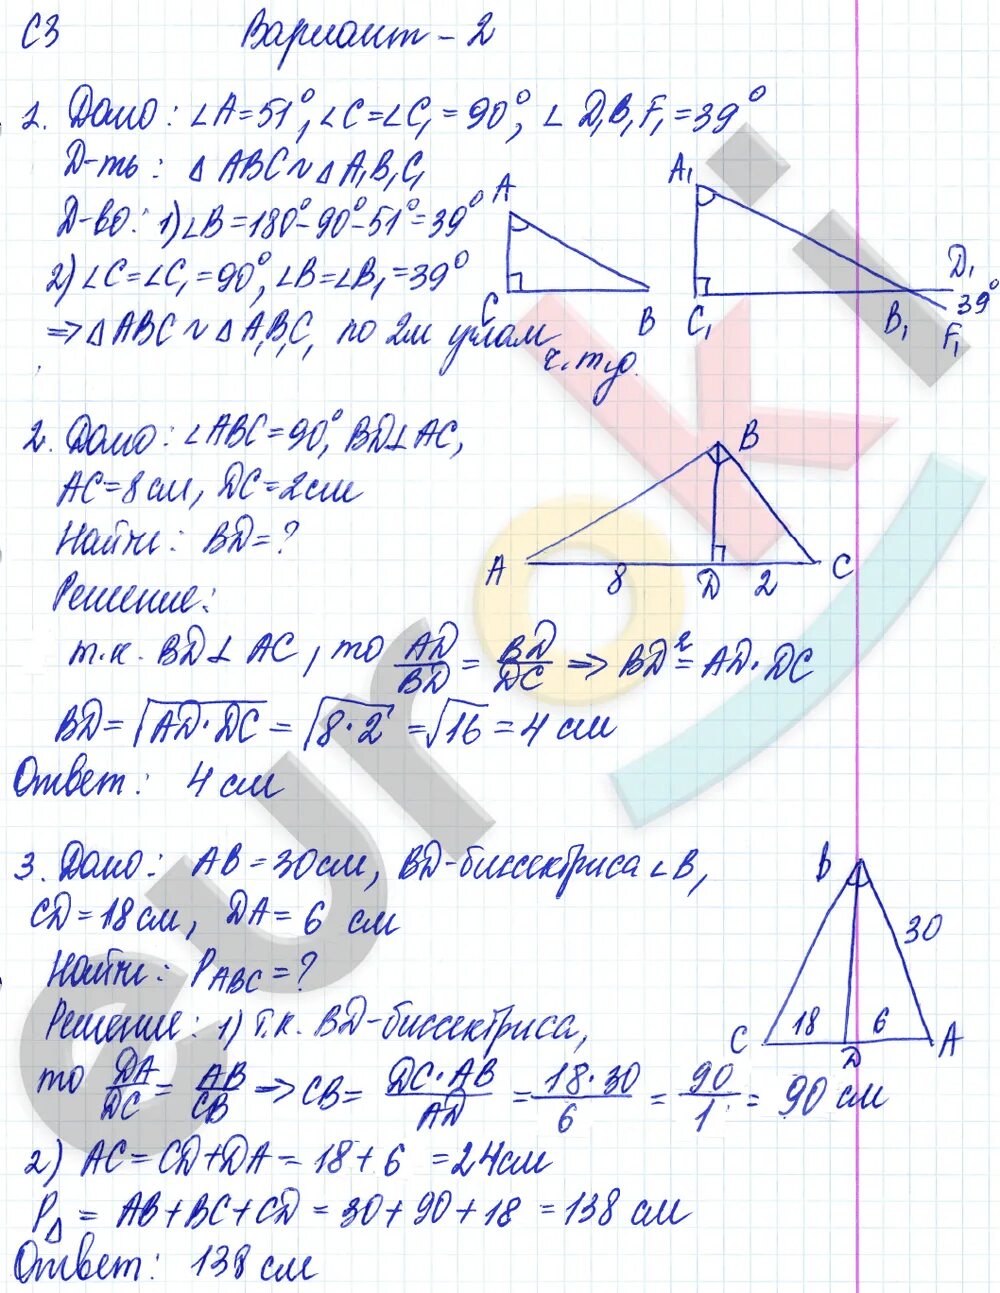 С3 Вариант - 2
1. Дано: ∠A = 51°, ∠C = ∠C₁ = 90°, ∠ D₁B₁F₁ = 39°
Д-ть: △ ABC ~ △ A₁B₁C₁
Д-во: 1) ∠B = 180° - 90° - 51° = 39°
2) ∠C = ∠C₁ = 90°, ∠B = ∠B₁ = 39°
=> △ ABC ~ △ A₁B₁C₁ по 2м углам
ч.т.д.
A
C
B
A₁
C₁
B₁
D₁
39°
F₁
2. Дано: ∠ABC = 90°, BD⊥AC,
AC = 8 см, DC = 2 см
Найти: BD = ?
Решение:
B
A
8
D
2
C
т.к. BD ⊥ AC, то AD/BD = BD/DC => BD² = AD · DC
BD = √AD · DC = √8 · 2 = √16 = 4 см
Ответ: 4 см
3. Дано: AB = 30 см, BD - биссектриса ∠B,
CD = 18 см, DA = 6 см
Найти: P ABC = ?
Решение: 1) Т.к. BD - биссектриса,
то DA/DC = AB/CB => CB = DC · AB/AD = 18 · 30/6 = 90/1 = 90 см
2) AC = CD + DA = 18 + 6 = 24 см
P△ = AB + BC + CD = 30 + 90 + 18 = 138 см
Ответ: 138 см
B
30
C
18
D
6
A
euroki